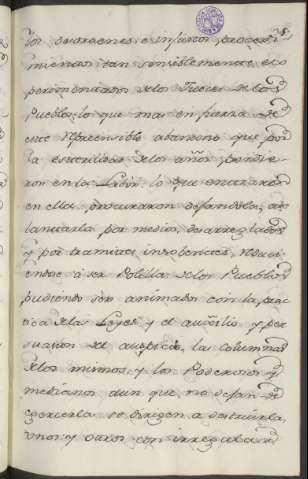 los desordenes e injustos procedi
mientos tan sensiblemente ex
perimentados de los Jueces de los
Pueblos, lo que mas en fuerza de
este reprensible abandono que por
la esterilidad de los años, perdie
ron en la Labor, lo que entraron
en ella, procuraron dejandola, ade
lantarla por medios desarreglados
y por tramites insolventes, redu
ciendose a ser Polilla de los Pueblos
pudiendo ser animados con la prac
tica de las Leyes, y el auxilio y per
suasion de auspicio, las columnas
de los mismos, y los Poderosos y
medianos aun que no dejan de
ejercerla se dirigen a destruirla,
unos y otros con irregular